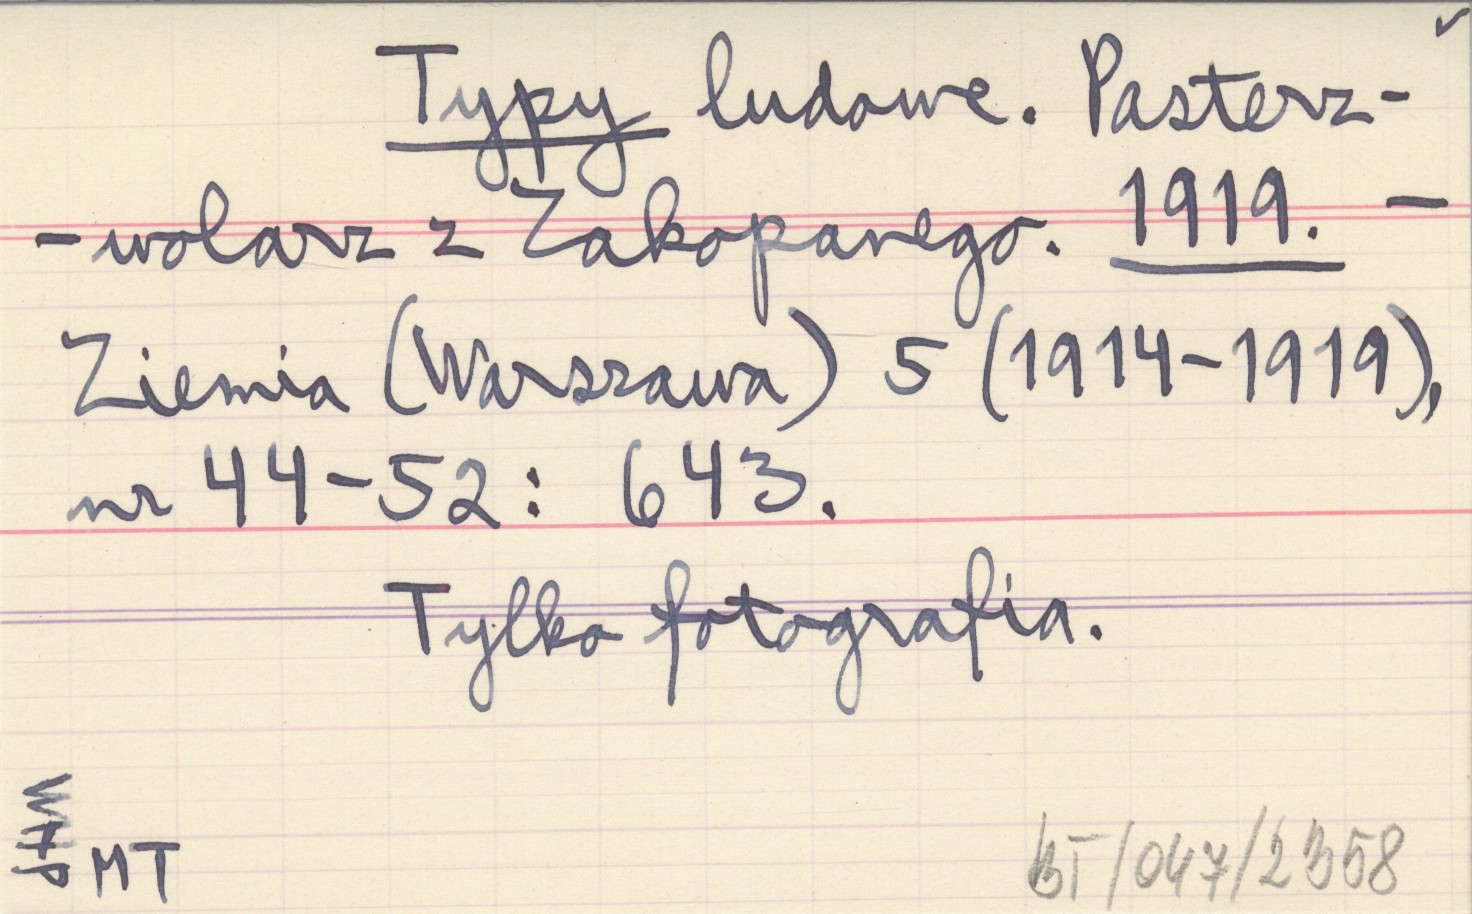 Typy ludowe. Pasterz-
-wolarz z Zakopanego. 1919. —
Ziemia (Warszawa) 5 (1914-1919),
nr 44-52: 643.
Tylko fotografia.
MT
BT/047/2358